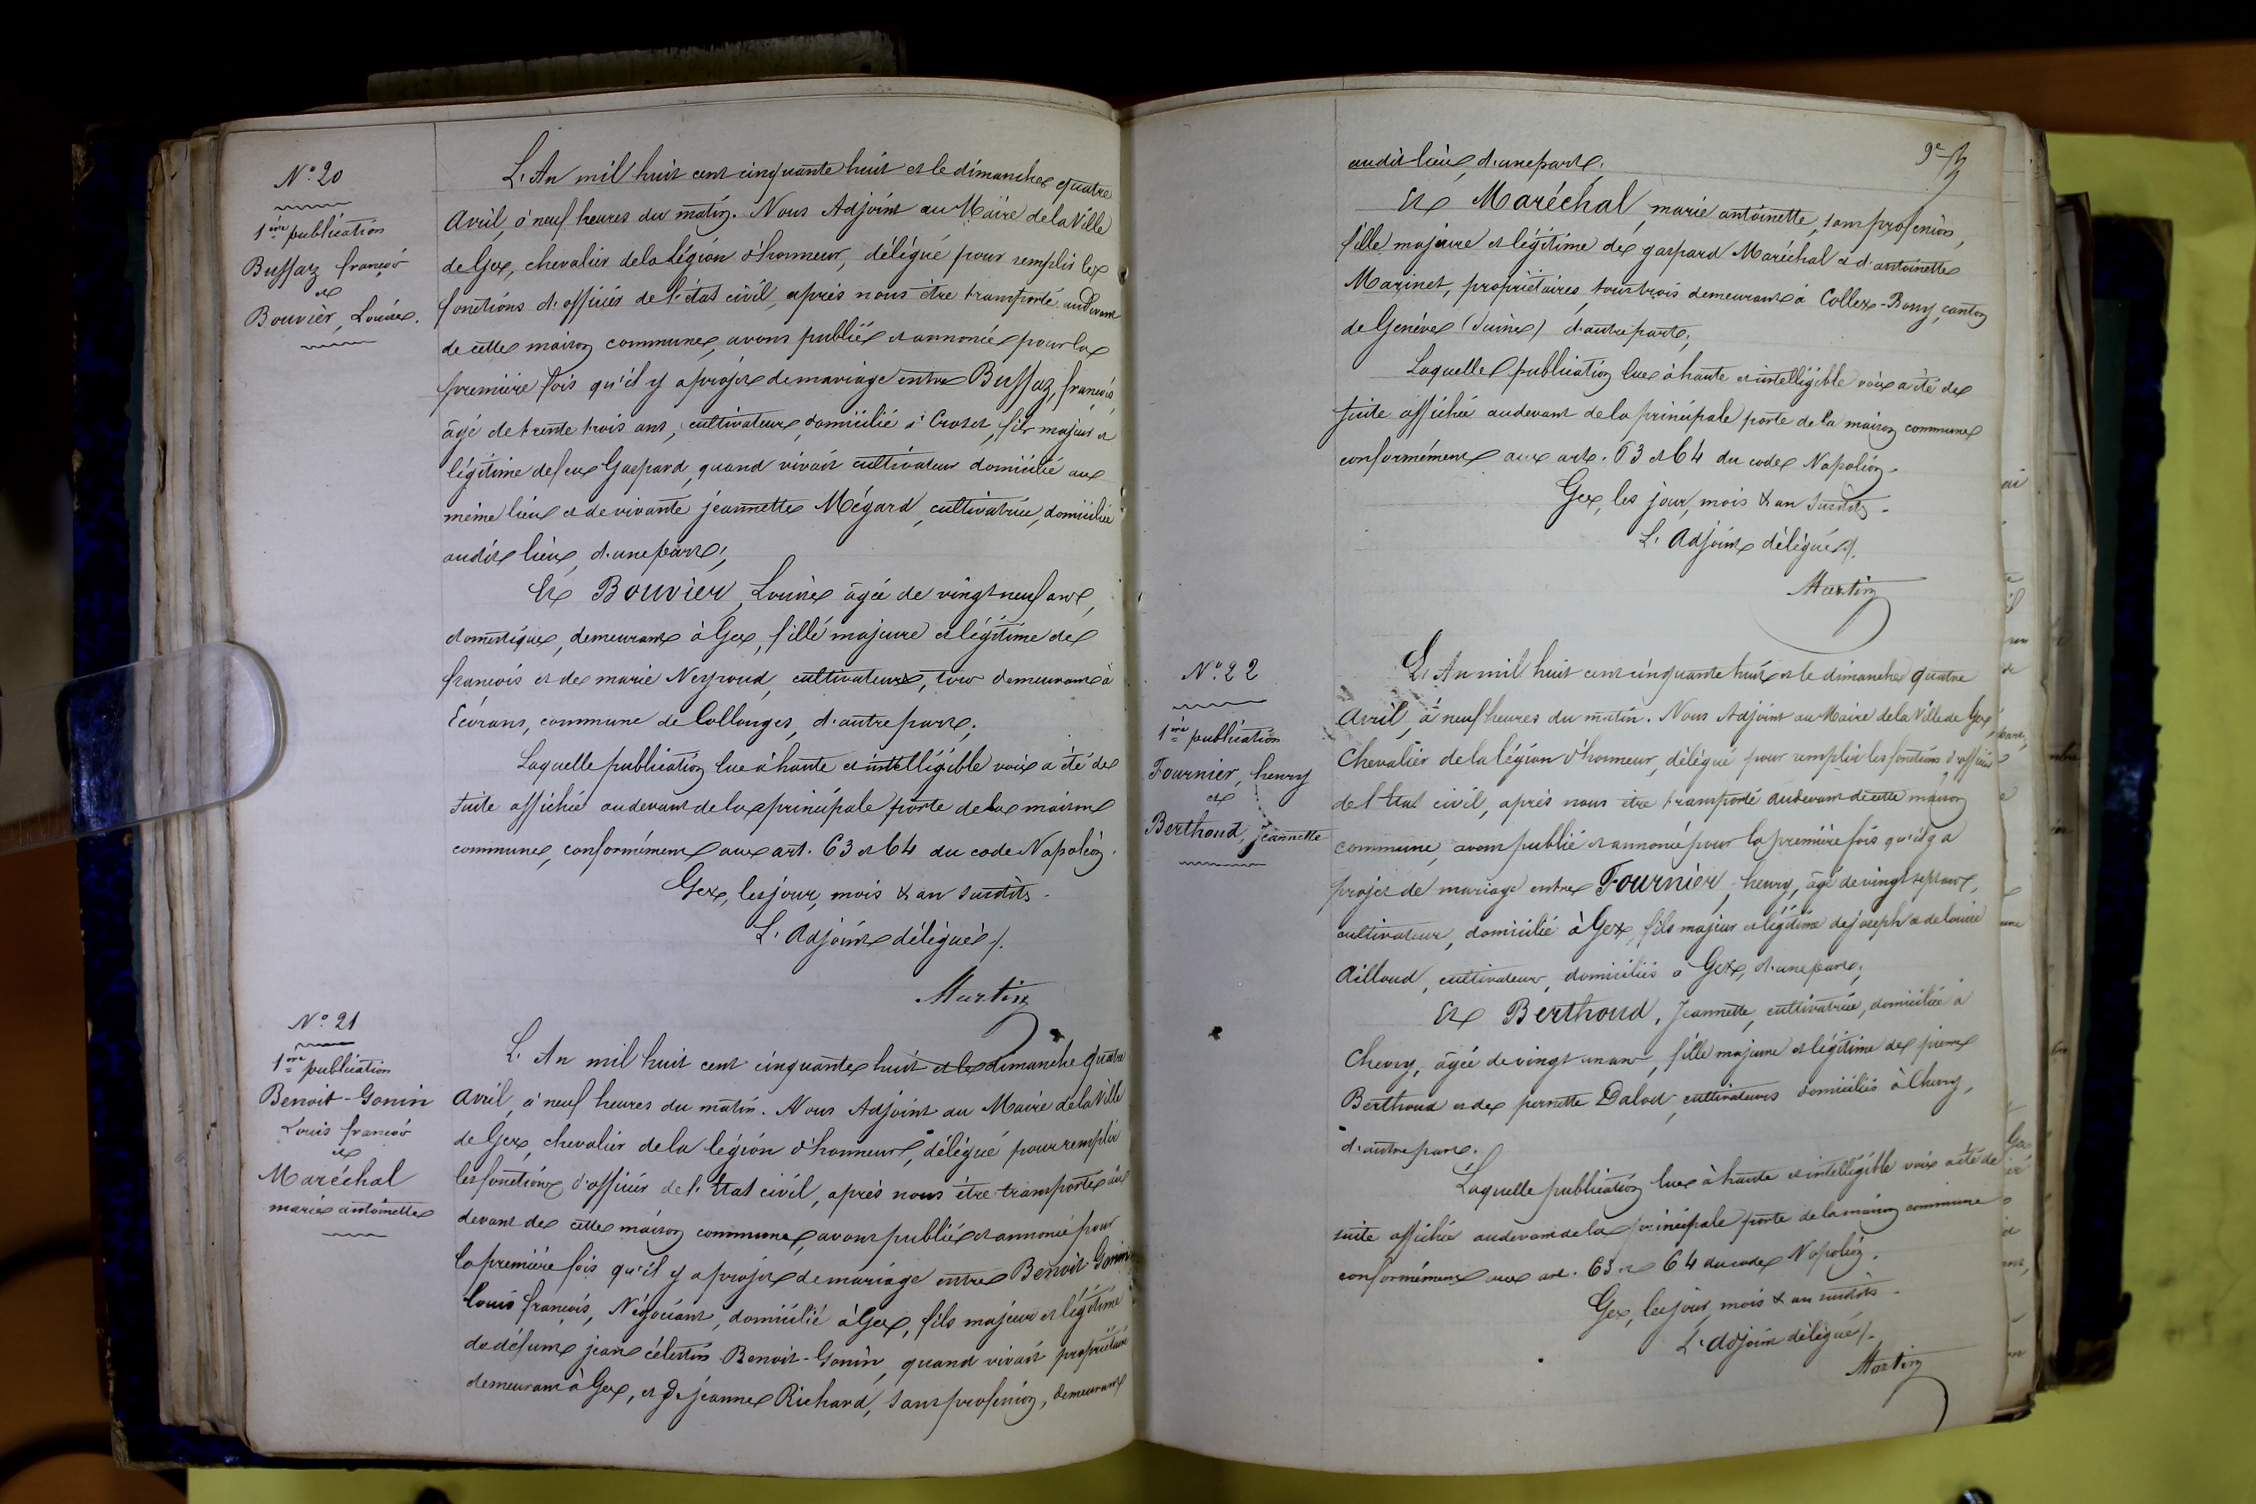 N° 20
1ère publication
Buffaz françois
et
Bouvier, Louise.
L'An mil huit cent cinquante huit et le dimanche quatre
Avril, à neuf heures du matin. Nous Adjoint au Maire de la Ville
de Gex, chevalier de la légion d'honneur, délégué pour remplir les
fonctions d'officier de l'état civil, après nous être transporté au devant
de cette maison commune, avons publié et annoncé pour la
première fois qu'il y a projet de mariage entre Buffaz, françois,
âgé de trente trois ans, cultivateur, domicilié à Crozet, fils majeur et
légitime de feu Gaspard, quand vivait cultivateur domicilié au
même lieu et de vivante jeannette Mégard, cultivatrice, domiciliée
audit lieu, d'une part;
Et Bouvier, Louise âgée de vingt neuf ans,
domestique, demeurant à Gex, fille majeure et légitime de
françois et de marie Neyroud, cultivateurs, tous demeurant à
Ecorans, commune de Collonges, d'autre part.
Laquelle publication lue à haute et intelligible voix a été de
suite affichée au devant de la principale porte de la maison
commune, conformément aux art. 63 et 64 du code Napoléon.
Gex, les jour, mois & an susdits.
L'Adjoint délégué /.
Martin
N° 21
1ère publication
Benoit-Gonin
Louis françois
et
Maréchal
marie antoinette
L'An mil huit cent cinquante huit et le dimanche quatre
Avril, à neuf heures du matin. Nous Adjoint au Maire de la Ville
de Gex, chevalier de la légion d'honneur, délégué pour remplir
les fonctions d'officier de l'Etat civil, après nous être transporté au
devant de cette maison commune, avons publié et annoncé pour
la première fois qu'il y a projet de mariage entre Benoit-Gonin
Louis françois, Négociant, domicilié à Gex, fils majeur et légitime
de défunt jean célestin Benoit-Gonin, quand vivait propriétaire
demeurant à Gex, et de jeanne Richard, sans profession, demeurant
audit lieu, d'une part;
Et Maréchal, marie antoinette, sans profession,
fille majeure et légitime de gaspard Maréchal et d'antoinette
Marinet, propriétaires, tous trois demeurant à Collex-Bossy, canton
de Genève (Suisse) d'autre part;
Laquelle publication lue à haute et intelligible voix a été de
suite affichée au devant de la principale porte de la maison commune
conformément aux art. 63 et 64 du code Napoléon.
Gex, les jour, mois & an susdits.
L'Adjoint délégué /.
Martin
N° 22
1ère publication
Fournier, henry
et
Berthoud, Jeannette
L'An mil huit cent cinquante huit et le dimanche quatre
Avril, à neuf heures du matin. Nous Adjoint au Maire de la Ville de Gex,
Chevalier de la légion d'honneur, délégué pour remplir les fonctions d'officier
de l'Etat civil, après nous être transporté au devant de cette maison
commune, avons publié et annoncé pour la première fois qu'il y a
projet de mariage entre Fournier, henry, âgé de vingt sept ans,
cultivateur, domicilié à Gex, fils majeur et légitime de joseph et de louise
Ailloud, cultivateur, domiciliés à Gex, d'une part;
Et Berthoud, Jeannette, cultivatrice, domiciliée à
Chevry, âgée de vingt un ans, fille majeure et légitime de pierre
Berthoud et de pernette Dalod, cultivateurs domiciliés à Chevry,
d'autre part.
Laquelle publication lue à haute et intelligible voix a été de
suite affichée au devant de la principale porte de la maison commune
conformément aux art. 63 et 64 du code Napoléon.
Gex, les jour, mois & an susdits.
L'Adjoint délégué /.
Martin